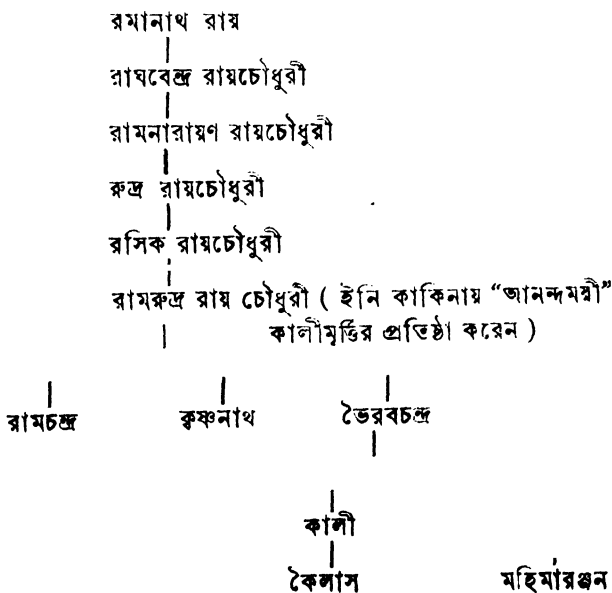 রমানাথ রায়
রাঘবেন্দ্র রায়চৌধুরী
রামনারায়ণ রায়চৌধুরী
রুদ্র রায়চৌধুরী
রসিক রায়চৌধুরী
রামরুদ্র রায় চৌধুরী ( ইনি কাকিনায় “আনন্দময়ী”
কালীমূর্ত্তির প্রতিষ্ঠা করেন )
রামচন্দ্র কৃষ্ণনাথ ভৈরবচন্দ্র
কালী
কৈলাস মহিমারঞ্জন